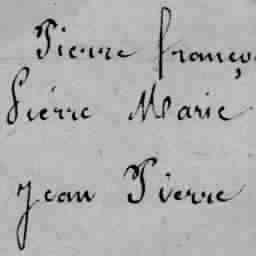 Pierre franço
Piérre Marie
Jean Pierre